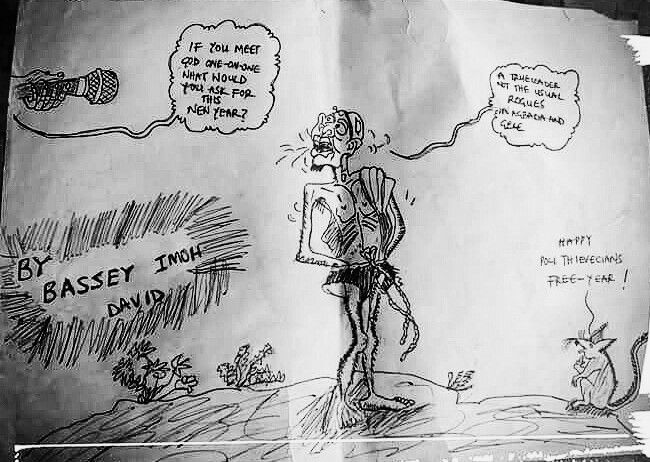 IF YOU MEET
GOD ONE-ON-ONE
WHAT WOULD
YOU ASK FOR
THIS
NEW YEAR?
A TRUE LEADER
NOT THE USUAL
ROGUES
IN AGBADA AND
GELE
BY
BASSEY IMOH
DAVID
HAPPY
POLI THIEVECIANS
FREE-YEAR!